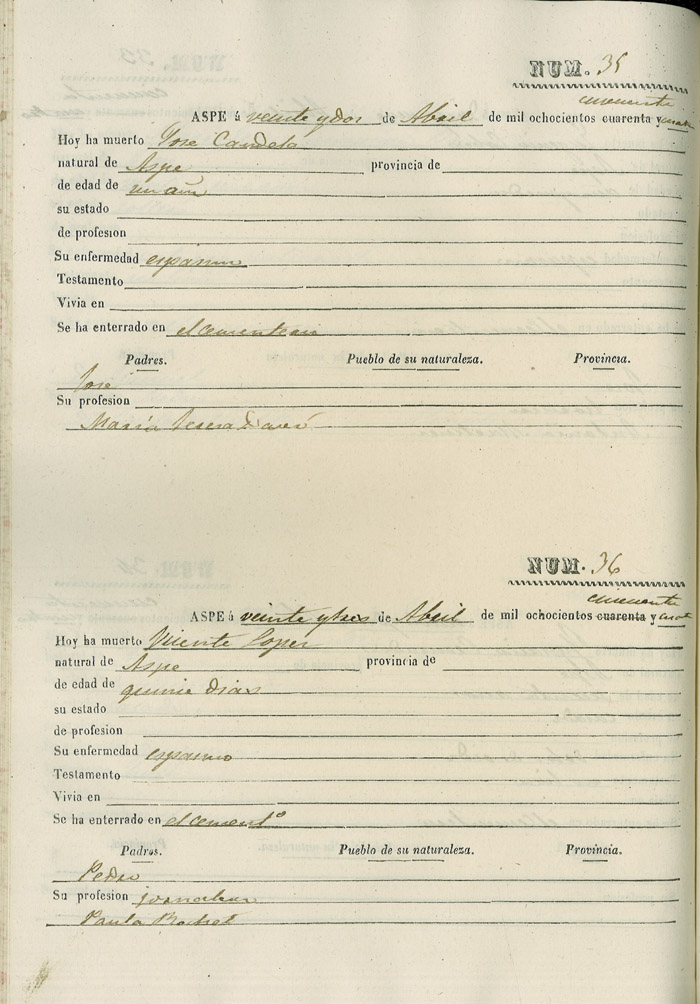 NUM. 35
cincuenta
ASPE á veinte y dos de Abril de mil ochocientos cuarenta y cuatro
Hoy ha muerto Jose Candela
natural de Aspe provincia de
de edad de un año
su estado
de profesion
Su enfermedad espasmo
Testamento
Vivia en
Se ha enterrado en el cementerio
Padres. Pueblo de su naturaleza. Provincia.
Jose
Su profesion
Maria Teresa
NUM. 36
cincuenta
ASPE á veinte y tres de Abril de mil ochocientos cuarenta y cuat
Hoy ha muerto Vicente Lopez
natural de Aspe provincia de
de edad de quince dias
su estado
de profesion
Su enfermedad espasmo
Testamento
Vivia en
Se ha enterrado en el cementº
Padres. Pueblo de su naturaleza. Provincia.
Pedro
Su profesion jornalero
Paula